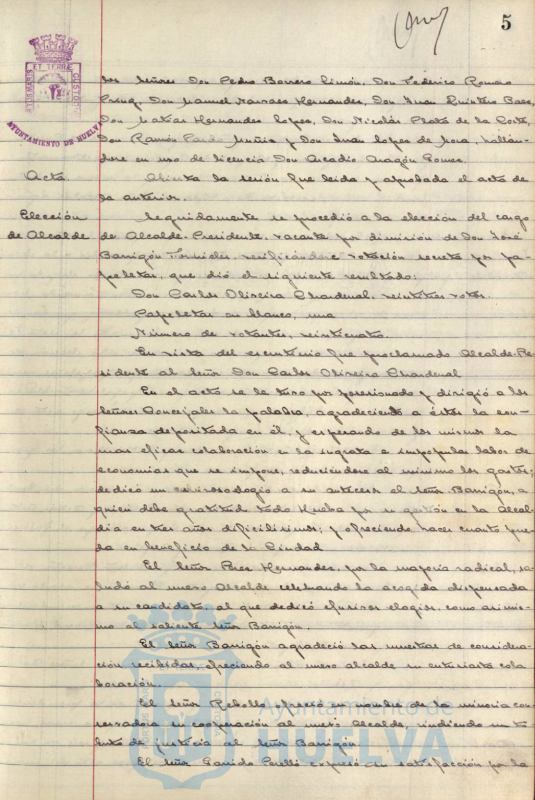 5
ET TERRÆ
AYUNTAMIENTO DE HUELVA
los Señores Don Pedro Borrero Limón, Don Federico Romero
Don Manuel Narvaez Hernandez, Don Juan Quintero Baez,
Don Matias Hernandez Lopez, Don Nicolás Prota de la Corte,
Don Ramón Pardo Muñiz y Don Juan Lopez de Mora, hallán
dose en uso de licencia Don Arcadio Aragón Gomez.
Acta. Abierta la sesión fue leida y aprobada el acta de
la anterior.
Elección Seguidamente se procedió a la elección del cargo
de Alcalde de Alcalde-Presidente, vacante por dimisión de Don José
Barrigón Fornieles, verificándose votación secreta por pa-
peletas, que dió el siguiente resultado:
Don Carlos Oliveira Chardenal, veintitres votos.
Papeletas en blanco, una
Número de votantes, veinticuatro.
En vista del escrutinio fue proclamado Alcalde-Pre
sidente al Señor Don Carlos Oliveira Chardenal
En el acto se le tuvo por posesionado y dirigió a los
Señores Concejales la palabra, agradeciendo a éstos la con-
fianza depositada en él, y esperando de los mismos la
mas eficaz colaboración en la ingrata e impopular labor de
economias que se impone, reduciendose al minimo los gastos;
dedicó un cariñoso elogio a su antecesor el Señor Barrigón, a
quien debe gratitud todo Huelva por su gestión en la Alcal-
dia en tres años dificilisimos; y ofreciendo hacer cuanto pue-
da en beneficio de la Ciudad
El Señor Perez Hernandez, por la mayoria radical, sa-
ludó al nuevo Alcalde celebrando la acogida dispensada
a su candidato, al que dedicó efusivos elogios, como asimis-
mo al saliente Señor Barrigón.
El Señor Barrigón agradeció las muestras de considera-
ción recibidas, ofreciendo al nuevo alcalde su entusiasta cola
boración.
El Señor Rebollo ofreció en nombre de la minoria con-
servadora su cooperación al nuevo Alcalde, rindiendo un tri
buto de justicia al Señor Barrigón
El Señor Garrido Perelló expresó su satisfacción por la
Ayuntamiento de
HUELVA